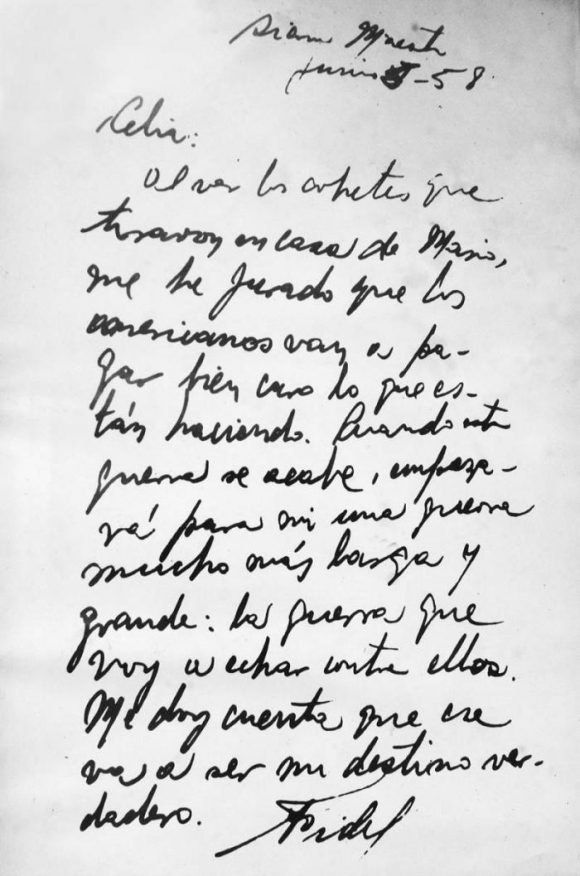 Sierra Maestra
Junio 5-58.
Celia:
Al ver los cohetes que
tiraron en casa de Mario,
me he jurado que los
americanos van a pa-
gar bien caro lo que es-
tán haciendo. Cuando esta
guerra se acabe, empeza-
rá para mi una guerra
mucho más larga y
grande: la guerra que
voy a echar contra ellos.
Me doy cuenta que ese
va a ser mi destino ver-
dadero.
Fidel